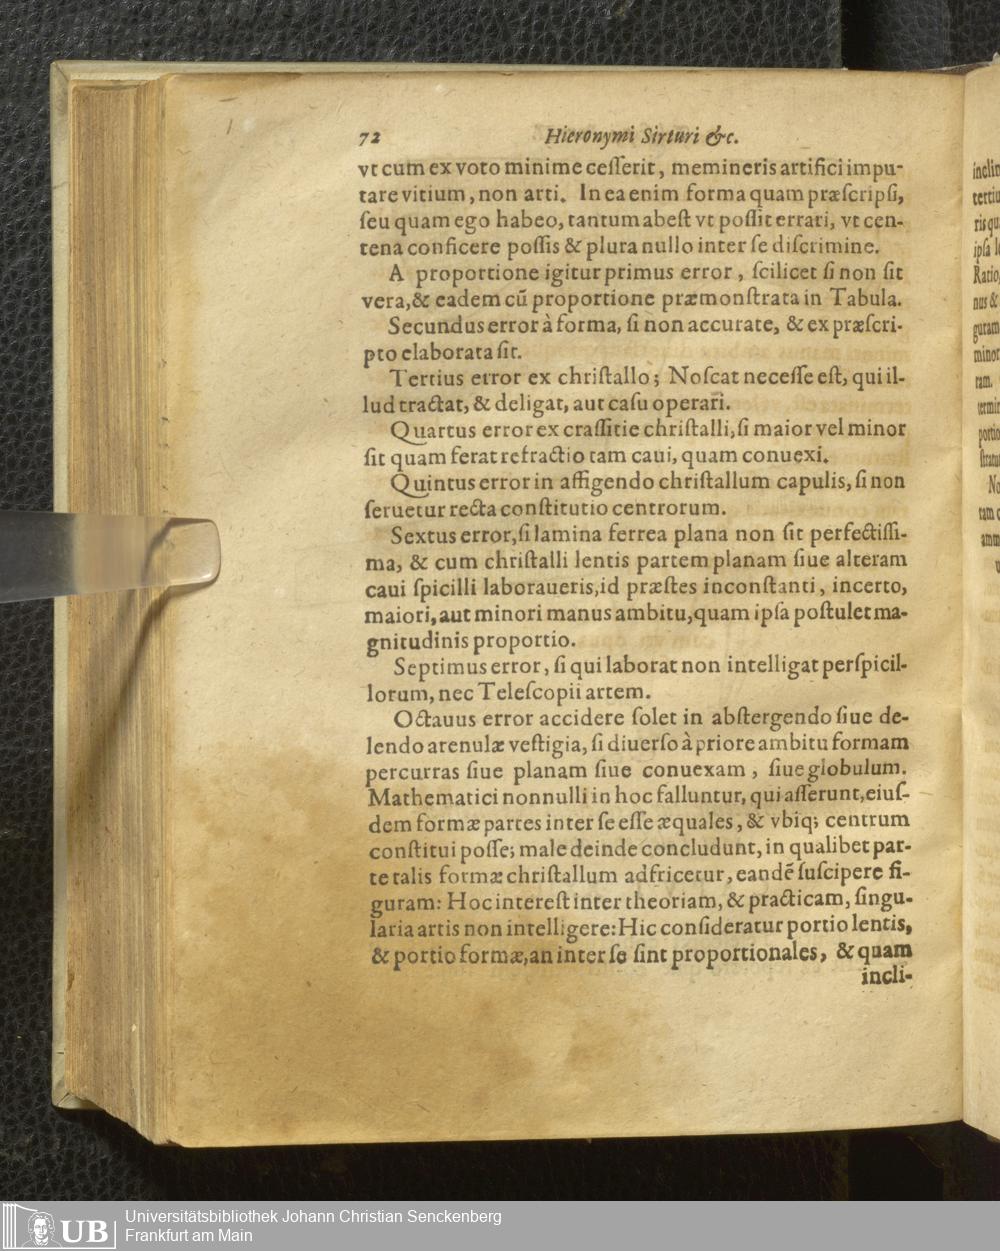 72 Hieronymi Sirturi &c.
vt cum ex voto minime cesserit, memineris artifici impu-
tare vitium, non arti. In ea enim forma quam præscripsi,
seu quam ego habeo, tantum abest vt possit errari, vt cen-
tena conficere possis & plura nullo inter se discrimine.
A proportione igitur primus error, scilicet si non sit
vera, & eadem cū proportione præmonstrata in Tabula.
Secundus error à forma, si non accurate, & ex præscri-
pto elaborata sit.
Tertius error ex christallo; Noscat necesse est, qui il-
lud tractat, & deligat, aut casu operari.
Quartus error ex crassitie christalli, si maior vel minor
sit quam ferat refractio tam caui, quam conuexi.
Quintus error in affigendo christallum capulis, si non
seruetur recta constitutio centrorum.
Sextus error, si lamina ferrea plana non sit perfectissi-
ma, & cum christalli lentis partem planam siue alteram
caui spicilli laboraueris, id præstes inconstanti, incerto,
maiori, aut minori manus ambitu, quam ipsa postulet ma-
gnitudinis proportio.
Septimus error, si qui laborat non intelligat perspicil-
lorum, nec Telescopii artem.
Octauus error accidere solet in abstergendo siue de-
lendo arenulæ vestigia, si diuerso à priore ambitu formam
percurras siue planam siue conuexam, siue globulum.
Mathematici nonnulli in hoc falluntur, qui asserunt, eius-
dem formæ partes inter se esse æquales, & vbiq; centrum
constitui posse; male deinde concludunt, in qualibet par-
te talis formæ christallum adfricetur, eandē suscipere fi-
guram: Hoc interest inter theoriam, & practicam, singu-
laria artis non intelligere: Hic consideratur portio lentis,
& portio formæ, an inter se sint proportionales, & quam
incli-
inclin
tertiu
ris qu
ipsa l
Ratio,
nus &
guram
minor
ram.
termin
portio
stratu
No
tam c
amm
UB
Universitätsbibliothek Johann Christian Senckenberg
Frankfurt am Main